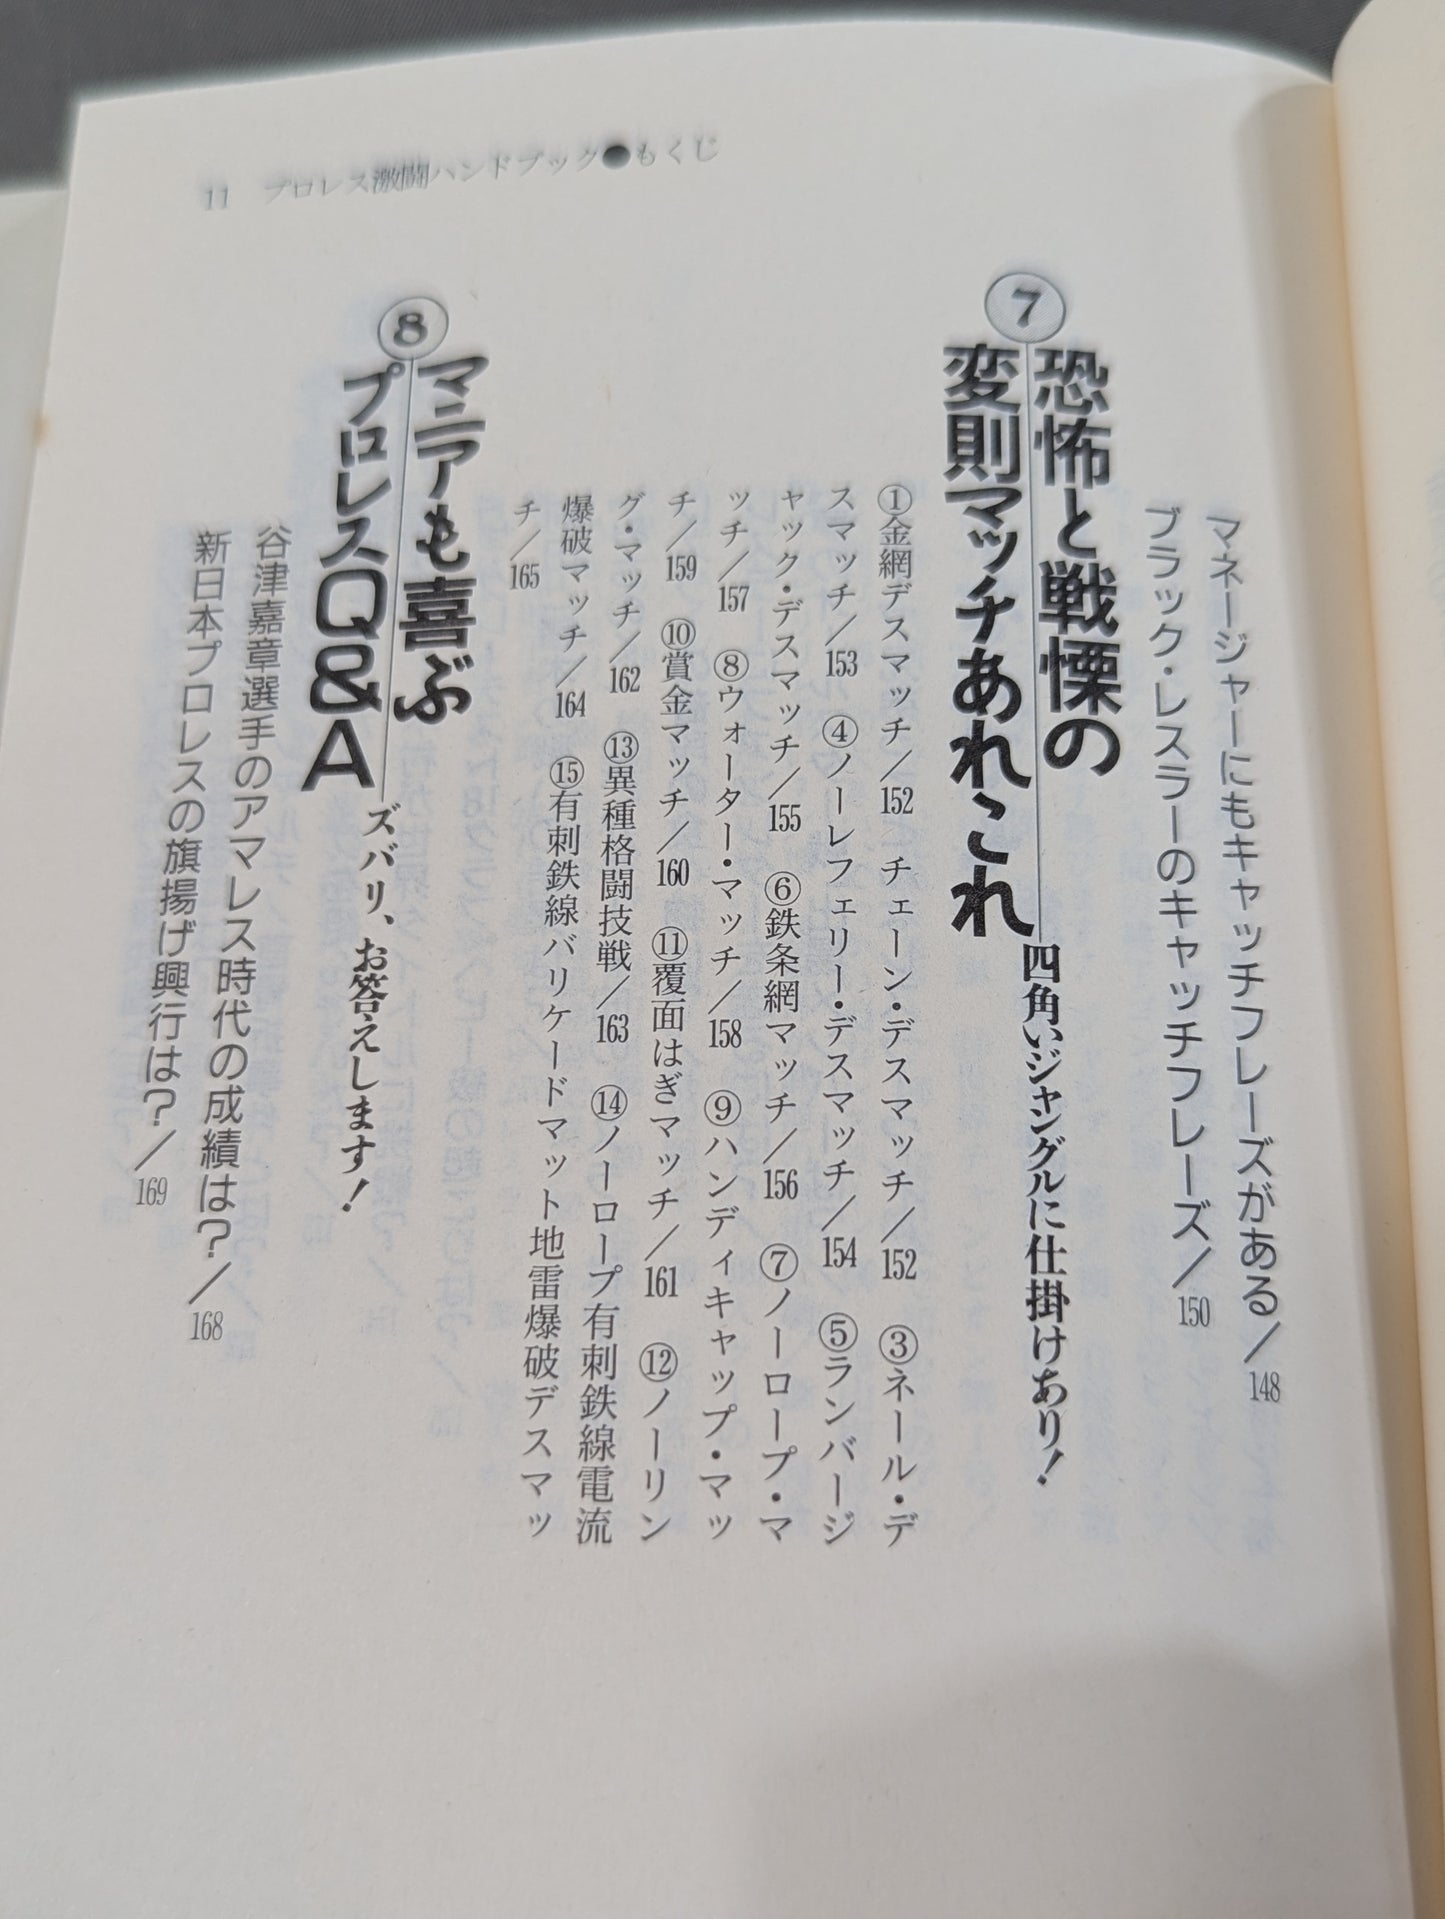 11 プロレス激闘ハンドブック●もくじ
マネージャーにもキャッチフレーズがある/148
ブラック・レスラーのキャッチフレーズ/150
⑦
恐怖と戦慄の
変則マッチあれこれ
四角いジャングルに仕掛けあり!
①金網デスマッチ/152 チェーン・デスマッチ/152 ③ネール・デ
スマッチ/153 ④ノーレフェリー・デスマッチ/154 ⑤ランバージ
ャック・デスマッチ/155 ⑥鉄条網マッチ/156 ⑦ノーロープ・マ
ッチ/157 ⑧ウォーター・マッチ/158 ⑨ハンディキャップ・マッ
チ/159 ⑩賞金マッチ/160 ⑪覆面はぎマッチ/161 ⑫ノーリン
グ・マッチ/162 ⑬異種格闘技戦/163 ⑭ノーロープ有刺鉄線電流
爆破マッチ/164 ⑮有刺鉄線バリケードマット地雷爆破デスマッ
チ/165
⑧
マニアも喜ぶ
プロレスQ&A
ズバリ、お答えします!
谷津嘉章選手のアマレス時代の成績は?/168
新日本プロレスの旗揚げ興行は?/169